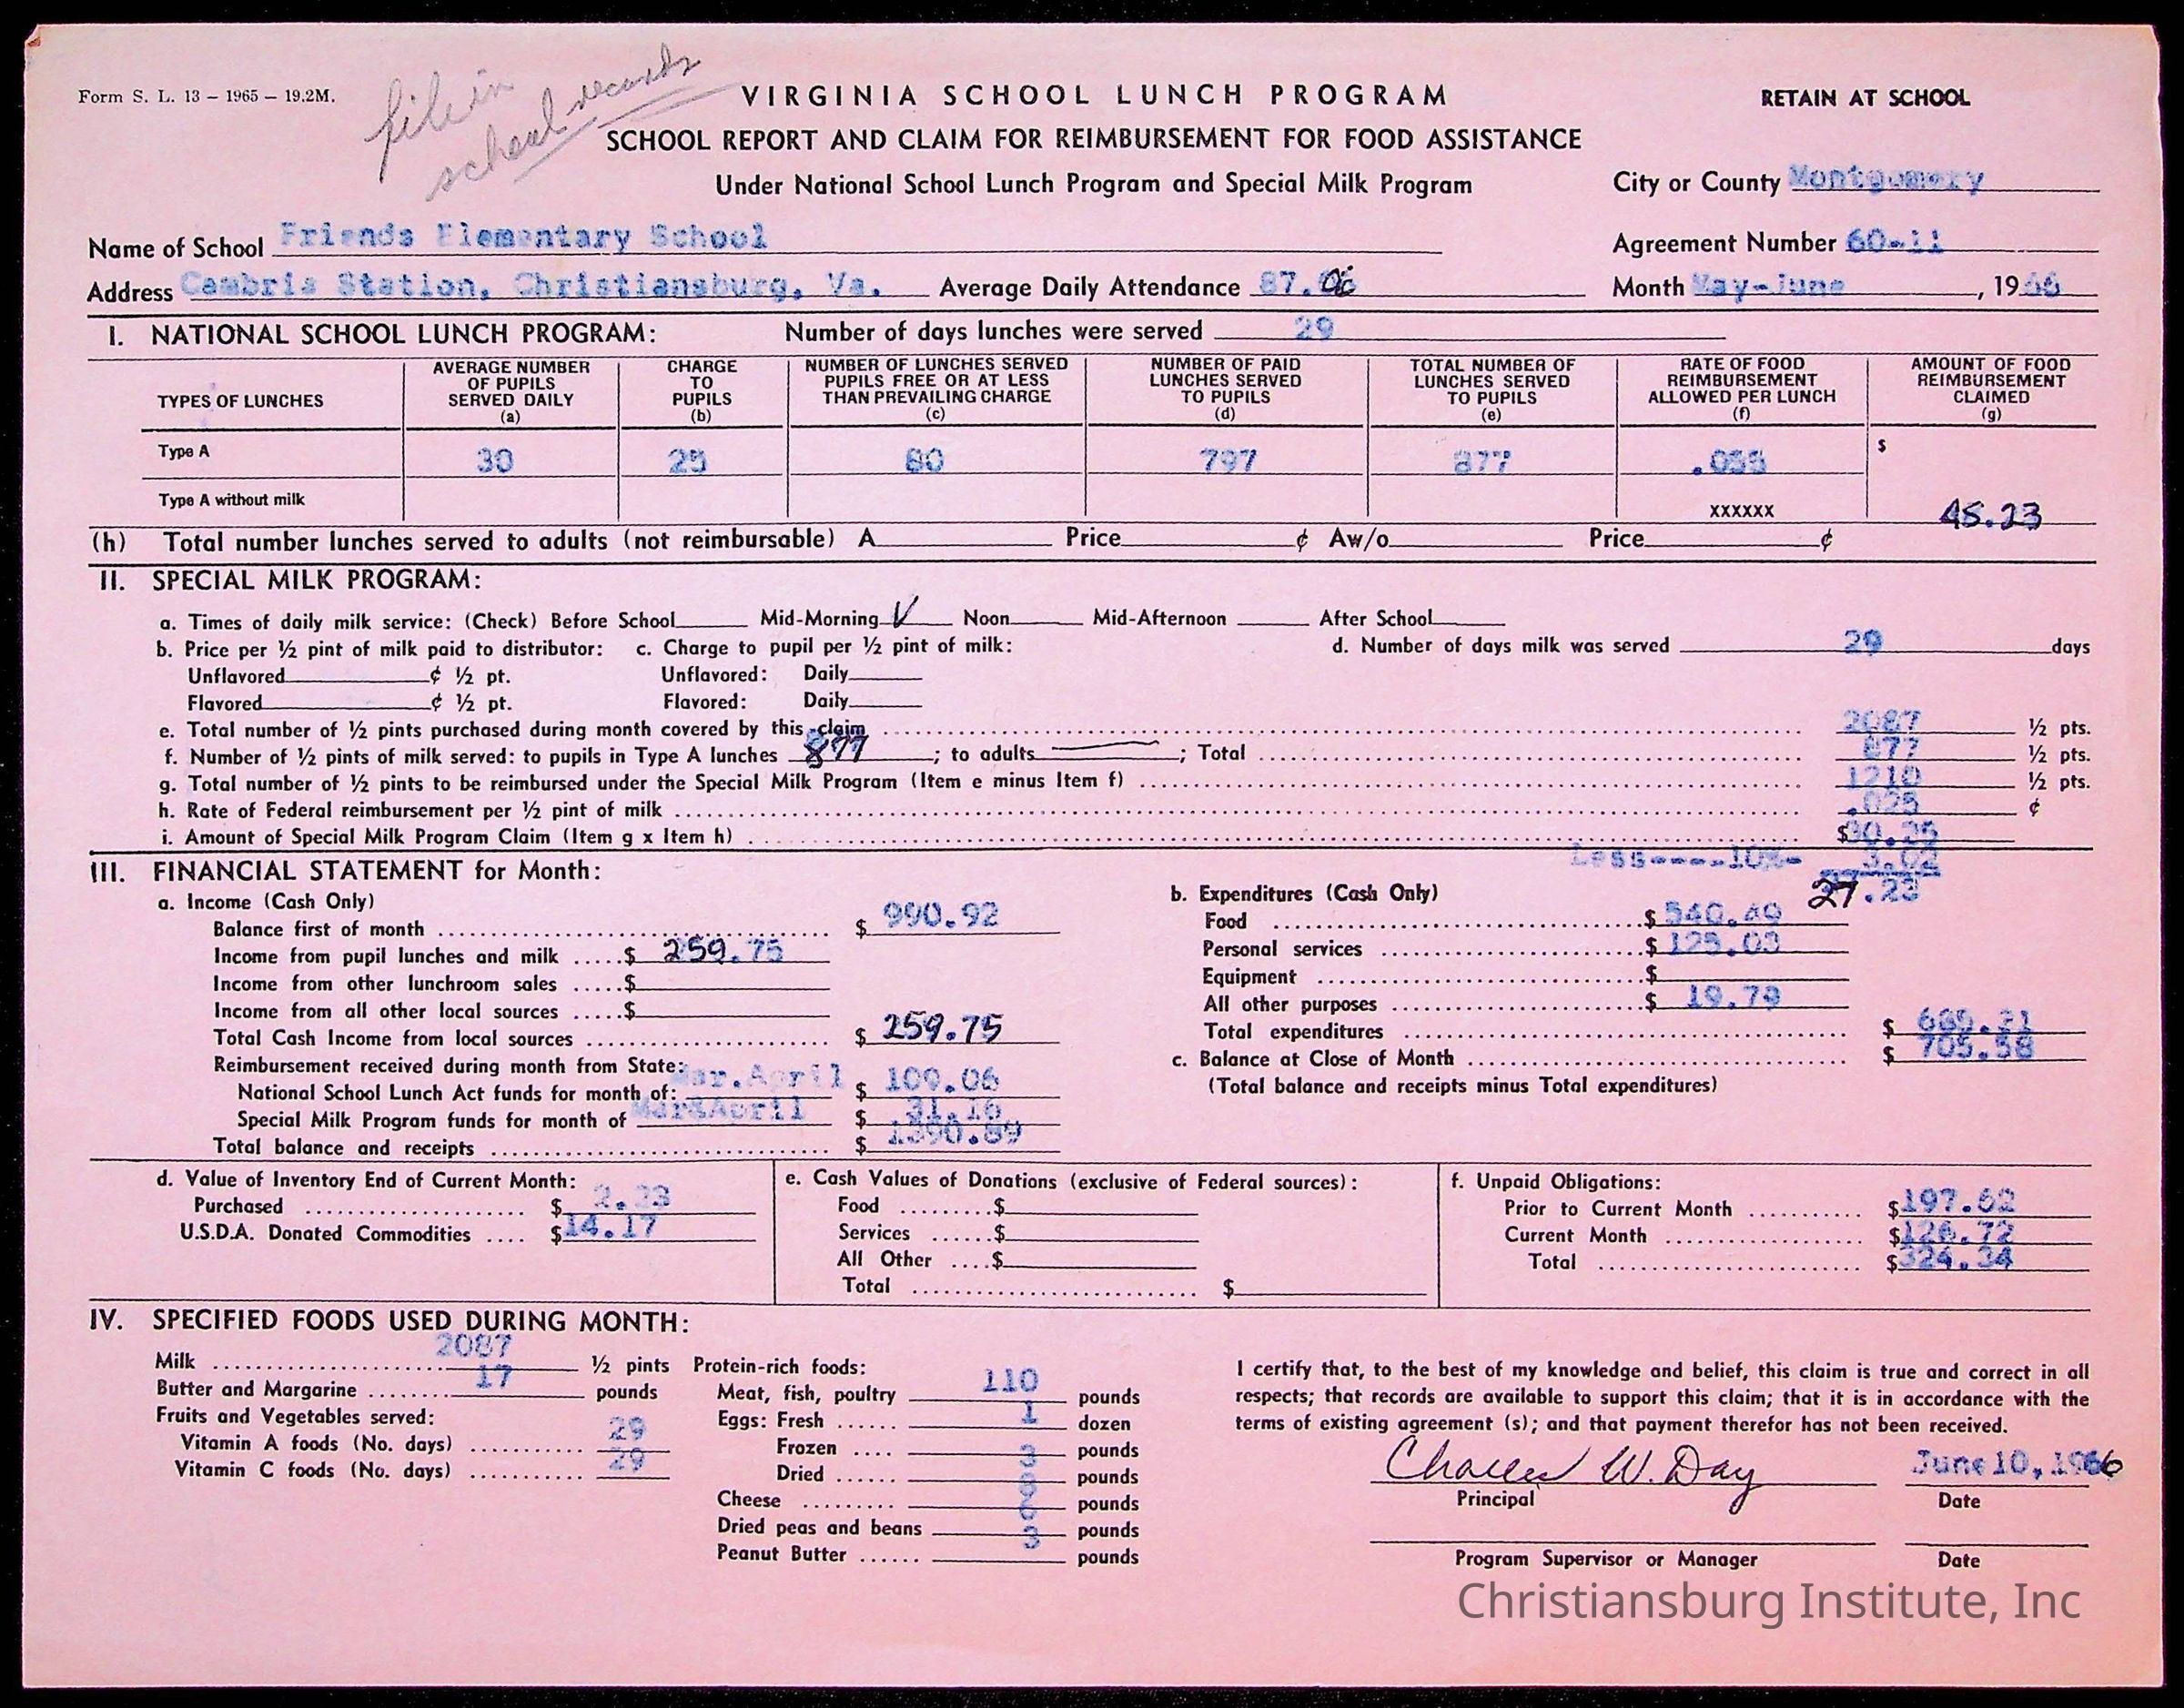 Form S. L. 13 – 1965 – 19.2M.
file in
school records
VIRGINIA SCHOOL LUNCH PROGRAM
RETAIN AT SCHOOL
SCHOOL REPORT AND CLAIM FOR REIMBURSEMENT FOR FOOD ASSISTANCE
Under National School Lunch Program and Special Milk Program
City or County Montgomery
Name of School Friends Elementary School
Agreement Number 60-11
Address Cambria Station, Christiansburg, Va. Average Daily Attendance 87.06
Month May-June, 1966
I. NATIONAL SCHOOL LUNCH PROGRAM: Number of days lunches were served 29
TYPES OF LUNCHES
AVERAGE NUMBER OF PUPILS SERVED DAILY (a)
CHARGE TO PUPILS (b)
NUMBER OF LUNCHES SERVED PUPILS FREE OR AT LESS THAN PREVAILING CHARGE (c)
NUMBER OF PAID LUNCHES SERVED TO PUPILS (d)
TOTAL NUMBER OF LUNCHES SERVED TO PUPILS (e)
RATE OF FOOD REIMBURSEMENT ALLOWED PER LUNCH (f)
AMOUNT OF FOOD REIMBURSEMENT CLAIMED (g)
Type A 30 25 80 797 877 .055 $
Type A without milk XXXXXX 48.23
(h) Total number lunches served to adults (not reimbursable) A Price ¢ Aw/o Price ¢
II. SPECIAL MILK PROGRAM:
a. Times of daily milk service: (Check) Before School Mid-Morning V Noon Mid-Afternoon After School
b. Price per ½ pint of milk paid to distributor: c. Charge to pupil per ½ pint of milk: d. Number of days milk was served 29 days
Unflavored ¢ ½ pt. Unflavored: Daily
Flavored ¢ ½ pt. Flavored: Daily
e. Total number of ½ pints purchased during month covered by this claim 2087 ½ pts.
f. Number of ½ pints of milk served: to pupils in Type A lunches 877; to adults ; Total 877 ½ pts.
g. Total number of ½ pints to be reimbursed under the Special Milk Program (Item e minus Item f) 1210 ½ pts.
h. Rate of Federal reimbursement per ½ pint of milk .025 ¢
i. Amount of Special Milk Program Claim (Item g x Item h) $30.25
Less----10%- 3.02
27.23
III. FINANCIAL STATEMENT for Month:
a. Income (Cash Only)
Balance first of month $ 990.92
Income from pupil lunches and milk $ 259.75
Income from other lunchroom sales $
Income from all other local sources $
Total Cash Income from local sources $ 259.75
Reimbursement received during month from State:
National School Lunch Act funds for month of: Mar.April $ 109.06
Special Milk Program funds for month of Mar&April $ 31.16
Total balance and receipts $ 1390.89
b. Expenditures (Cash Only)
Food $ 540.49
Personal services $ 125.03
Equipment $
All other purposes $ 19.79
Total expenditures $ 685.31
c. Balance at Close of Month $ 705.58
(Total balance and receipts minus Total expenditures)
d. Value of Inventory End of Current Month:
Purchased $ 2.33
U.S.D.A. Donated Commodities $14.17
e. Cash Values of Donations (exclusive of Federal sources):
Food $
Services $
All Other $
Total $
f. Unpaid Obligations:
Prior to Current Month $197.62
Current Month $126.72
Total $324.34
IV. SPECIFIED FOODS USED DURING MONTH:
Milk 2087 ½ pints
Butter and Margarine 17 pounds
Fruits and Vegetables served:
Vitamin A foods (No. days) 29
Vitamin C foods (No. days) 29
Protein-rich foods:
Meat, fish, poultry 110 pounds
Eggs: Fresh 1 dozen
Frozen pounds
Dried 3 pounds
Cheese pounds
Dried peas and beans 6 pounds
Peanut Butter 3 pounds
I certify that, to the best of my knowledge and belief, this claim is true and correct in all
respects; that records are available to support this claim; that it is in accordance with the
terms of existing agreement (s); and that payment therefor has not been received.
Charles W. Day June 10, 1966
Principal Date
Program Supervisor or Manager Date
Christiansburg Institute, Inc